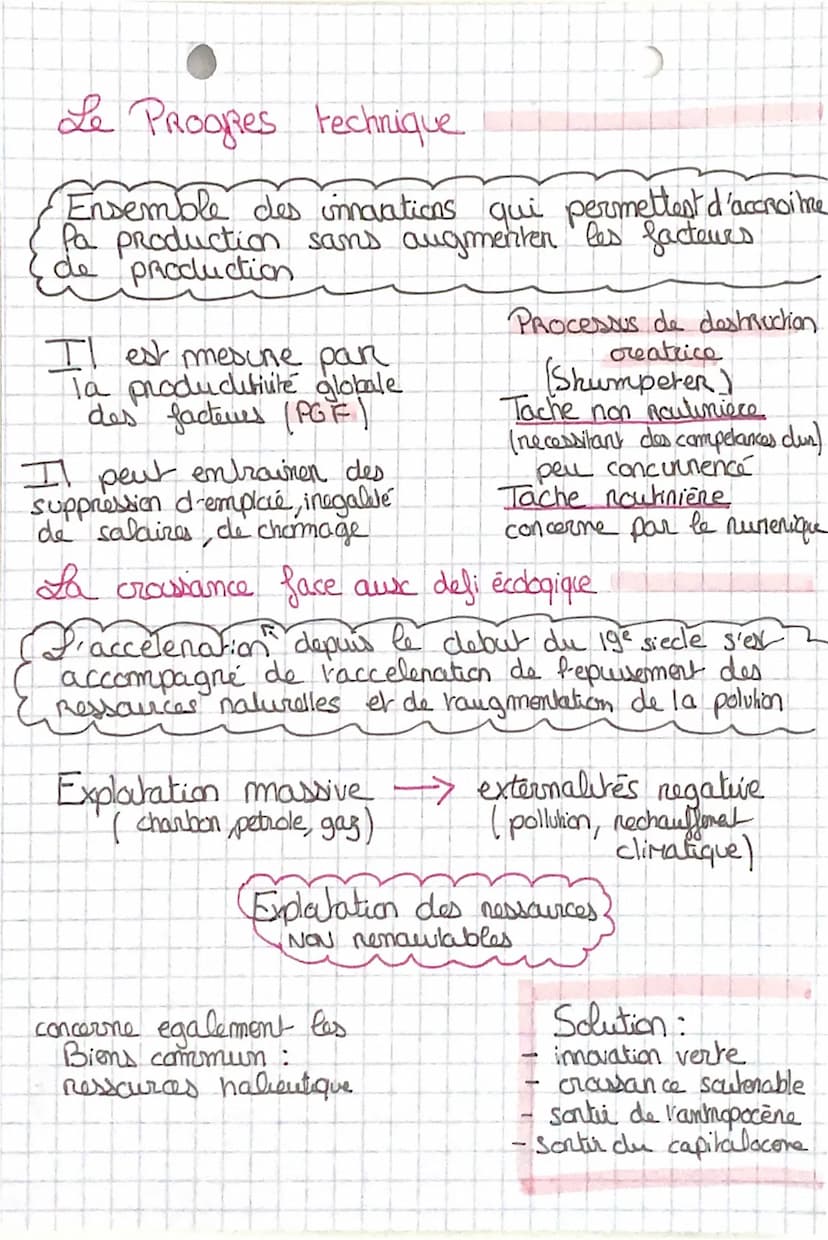 Le Progres technique
Ensemble des innovations qui permettent d'accroitre
la production sans augmenter les facteurs
de production
Il est mesure par
la produdutivité globale
des facteurs (PGF)
Il peut entrainer des
suppression d'emploie, inegalité
de salaires, de chomage
Processus de destruction
creatrice
(Shumpeter)
Tache non routiniere
(necessitant des competances dun)
peu concurrencé
Tache routinière
concerne par le numerique
La croissance face aux defi écologique
L'acceleration depuis le debut du 19e siecle s'est
accompagné de l'acceleration de l'epuisement des
Ressources naturelles et de l'augmentation de la polution
Exploitation massive → externalités negative
(charbon, petrole, gaz) (pollution, rechauffement
climatique)
Exploitation des ressources
NON renouvlables
concerne egalement les
Biens commun :
ressources halieutique
Solution :
- innovation verte
- croissance soutenable
- sortir de l'antropocène
- sortir du capitalocene